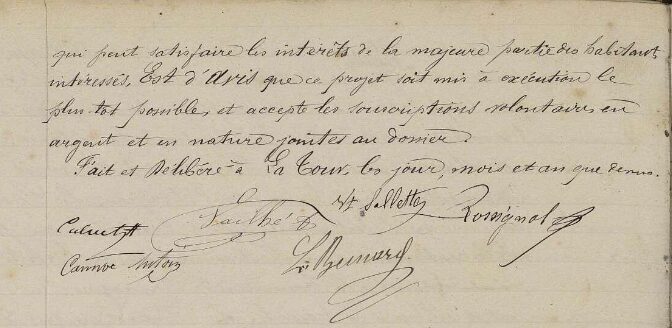 qui peut satisfaire les intérêts de la majeure partie des habitants
intéressés, Est d'avis que ce projet soit mis à exécution le
plus tot possible, et accepte les souscriptions volontaires en
argent et en nature jointes au dossier.
Fait et Délibéré à La Tour, les jour, mois et an que dessus.
Rossignol